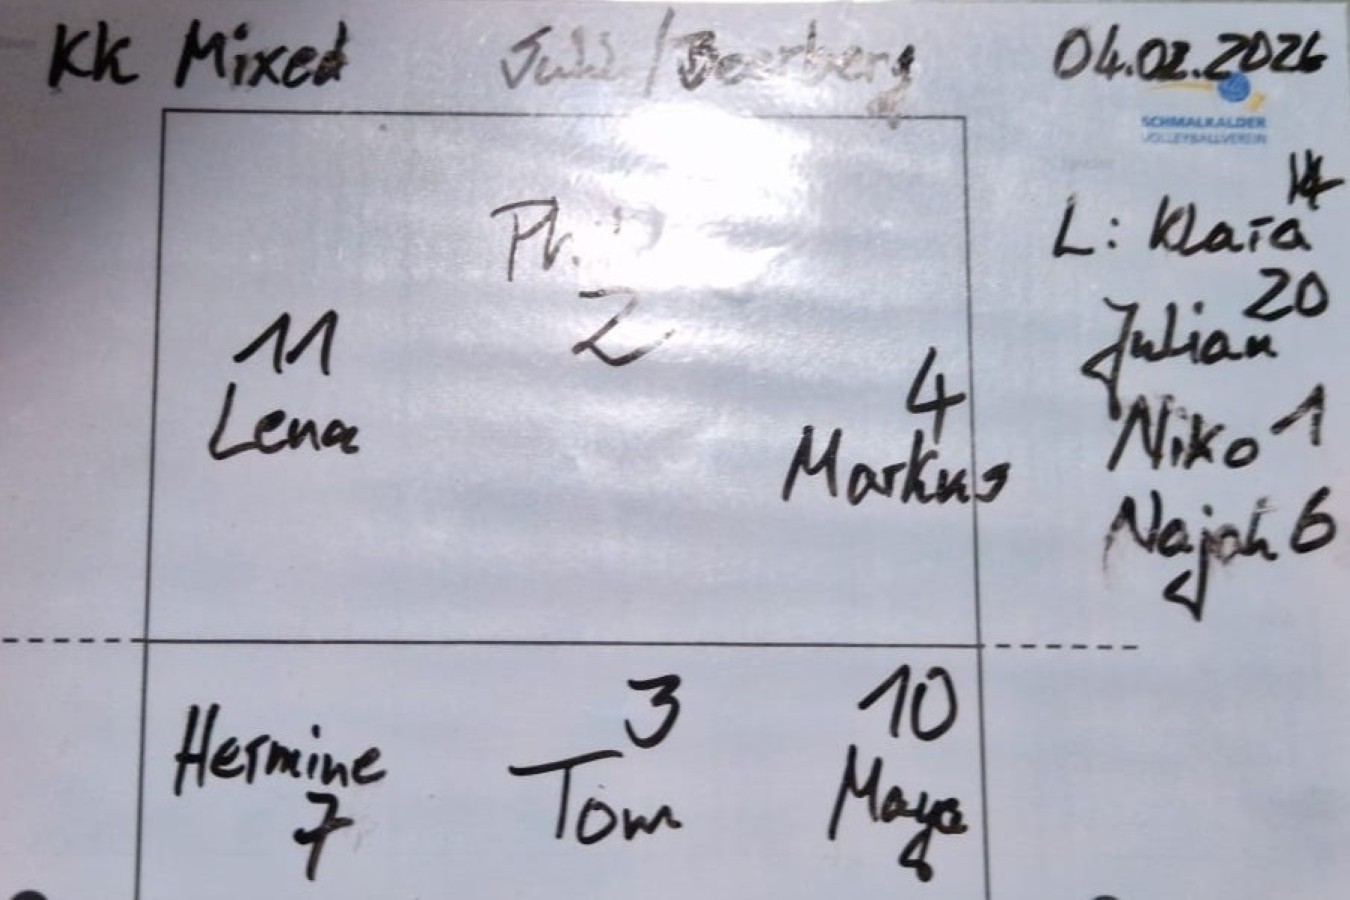 KK Mixed
/Beerberg
04.02.2026
SCHMALKALDER
VOLLEYBALLVEREIN
14
L: Klara
20
Julian
Niko 1
Najah 6
2
11
Lena
4
Markus
Hermine
7
3
Tom
10
Maya